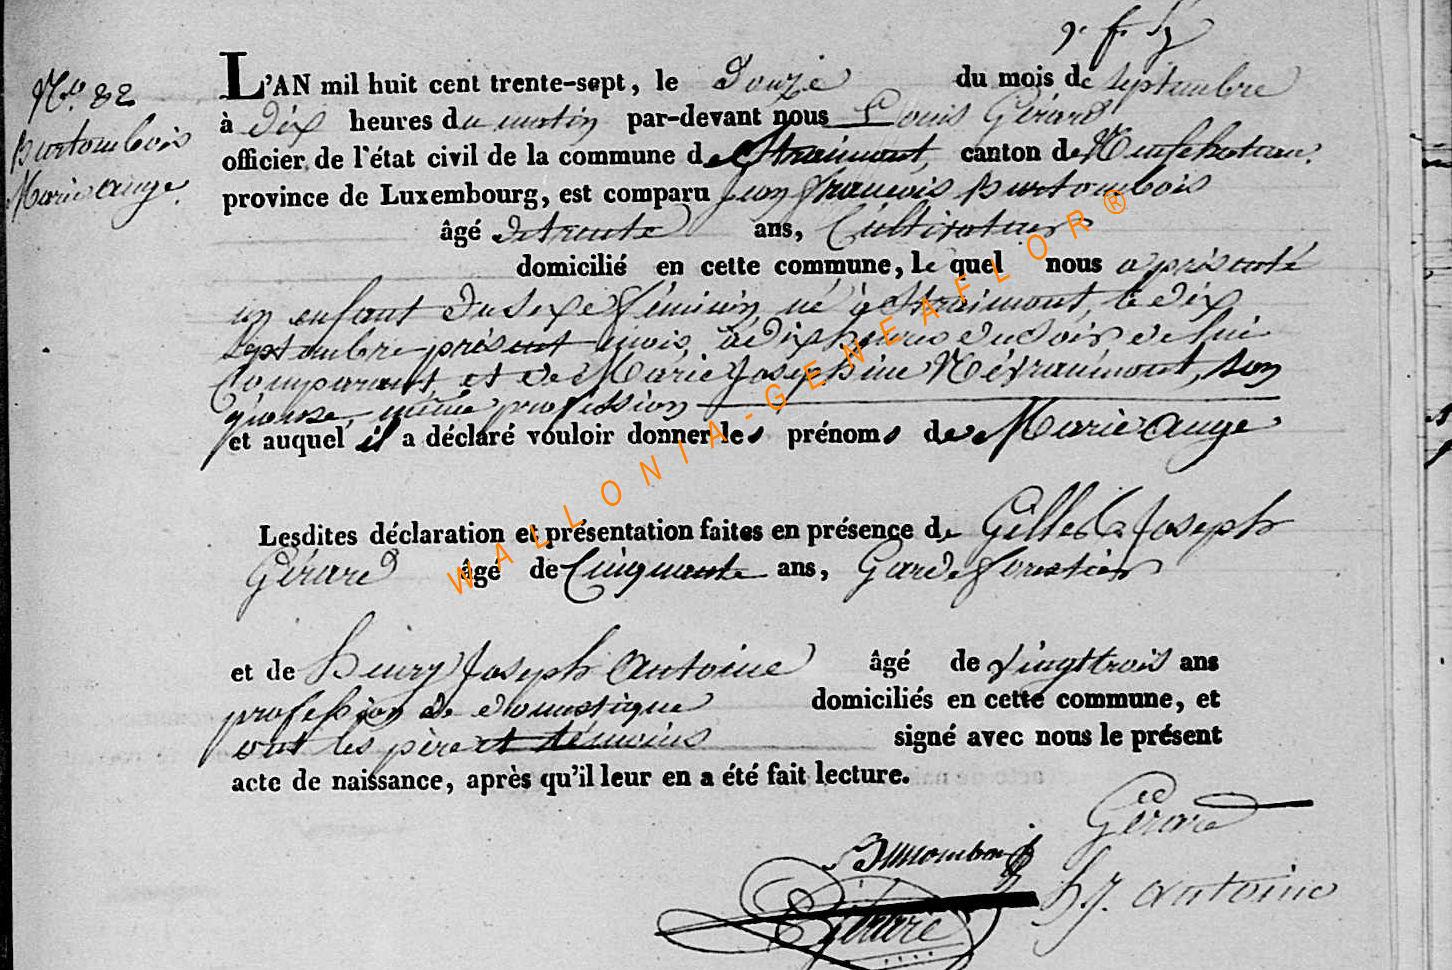 N° 82
Burtombois
Marie Ange.
L'AN mil huit cent trente-sept, le Douze du mois de septembre
à dix heures du matin par-devant nous Louis Gérard
officier de l'état civil de la commune de Straimont, canton de Neufchateau.
province de Luxembourg, est comparu Jean françois Burtombois
âgé de trente ans, Cultivateur
domicilié en cette commune, le quel nous a présenté
un enfant du sexe féminin, né à Straimont, le dix
septembre présent mois à dix heures du soir de lui
Comparant et de Marie Josephine Névraumont, son
épouse, même profession
et auquel il a déclaré vouloir donner les prénoms de Marie Ange
Lesdites déclaration et présentation faites en présence de Gilles Joseph
Gérard âgé de Cinquante ans, Garde forestier
et de henry Joseph Antoine âgé de vingt trois ans
profession de domestique domiciliés en cette commune, et
ont les père et témoins signé avec nous le présent
acte de naissance, après qu'il leur en a été fait lecture.
Gérard
Burtombois
h. J. Antoine
Gérard
WALLONIA-GENEAFLOR®